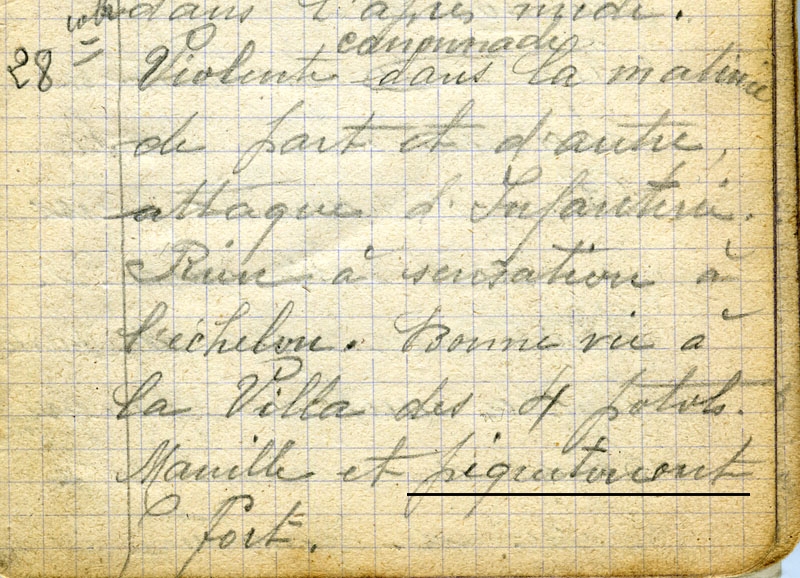 dans l'après midi.
canonnade
28 Violente dans la matinée
de part et d'autre,
attaque d'Infanterie.
Rien à sensation à
l'échelon. Bonne vie à
la Villa des 4 potots.
Manille et
fort.